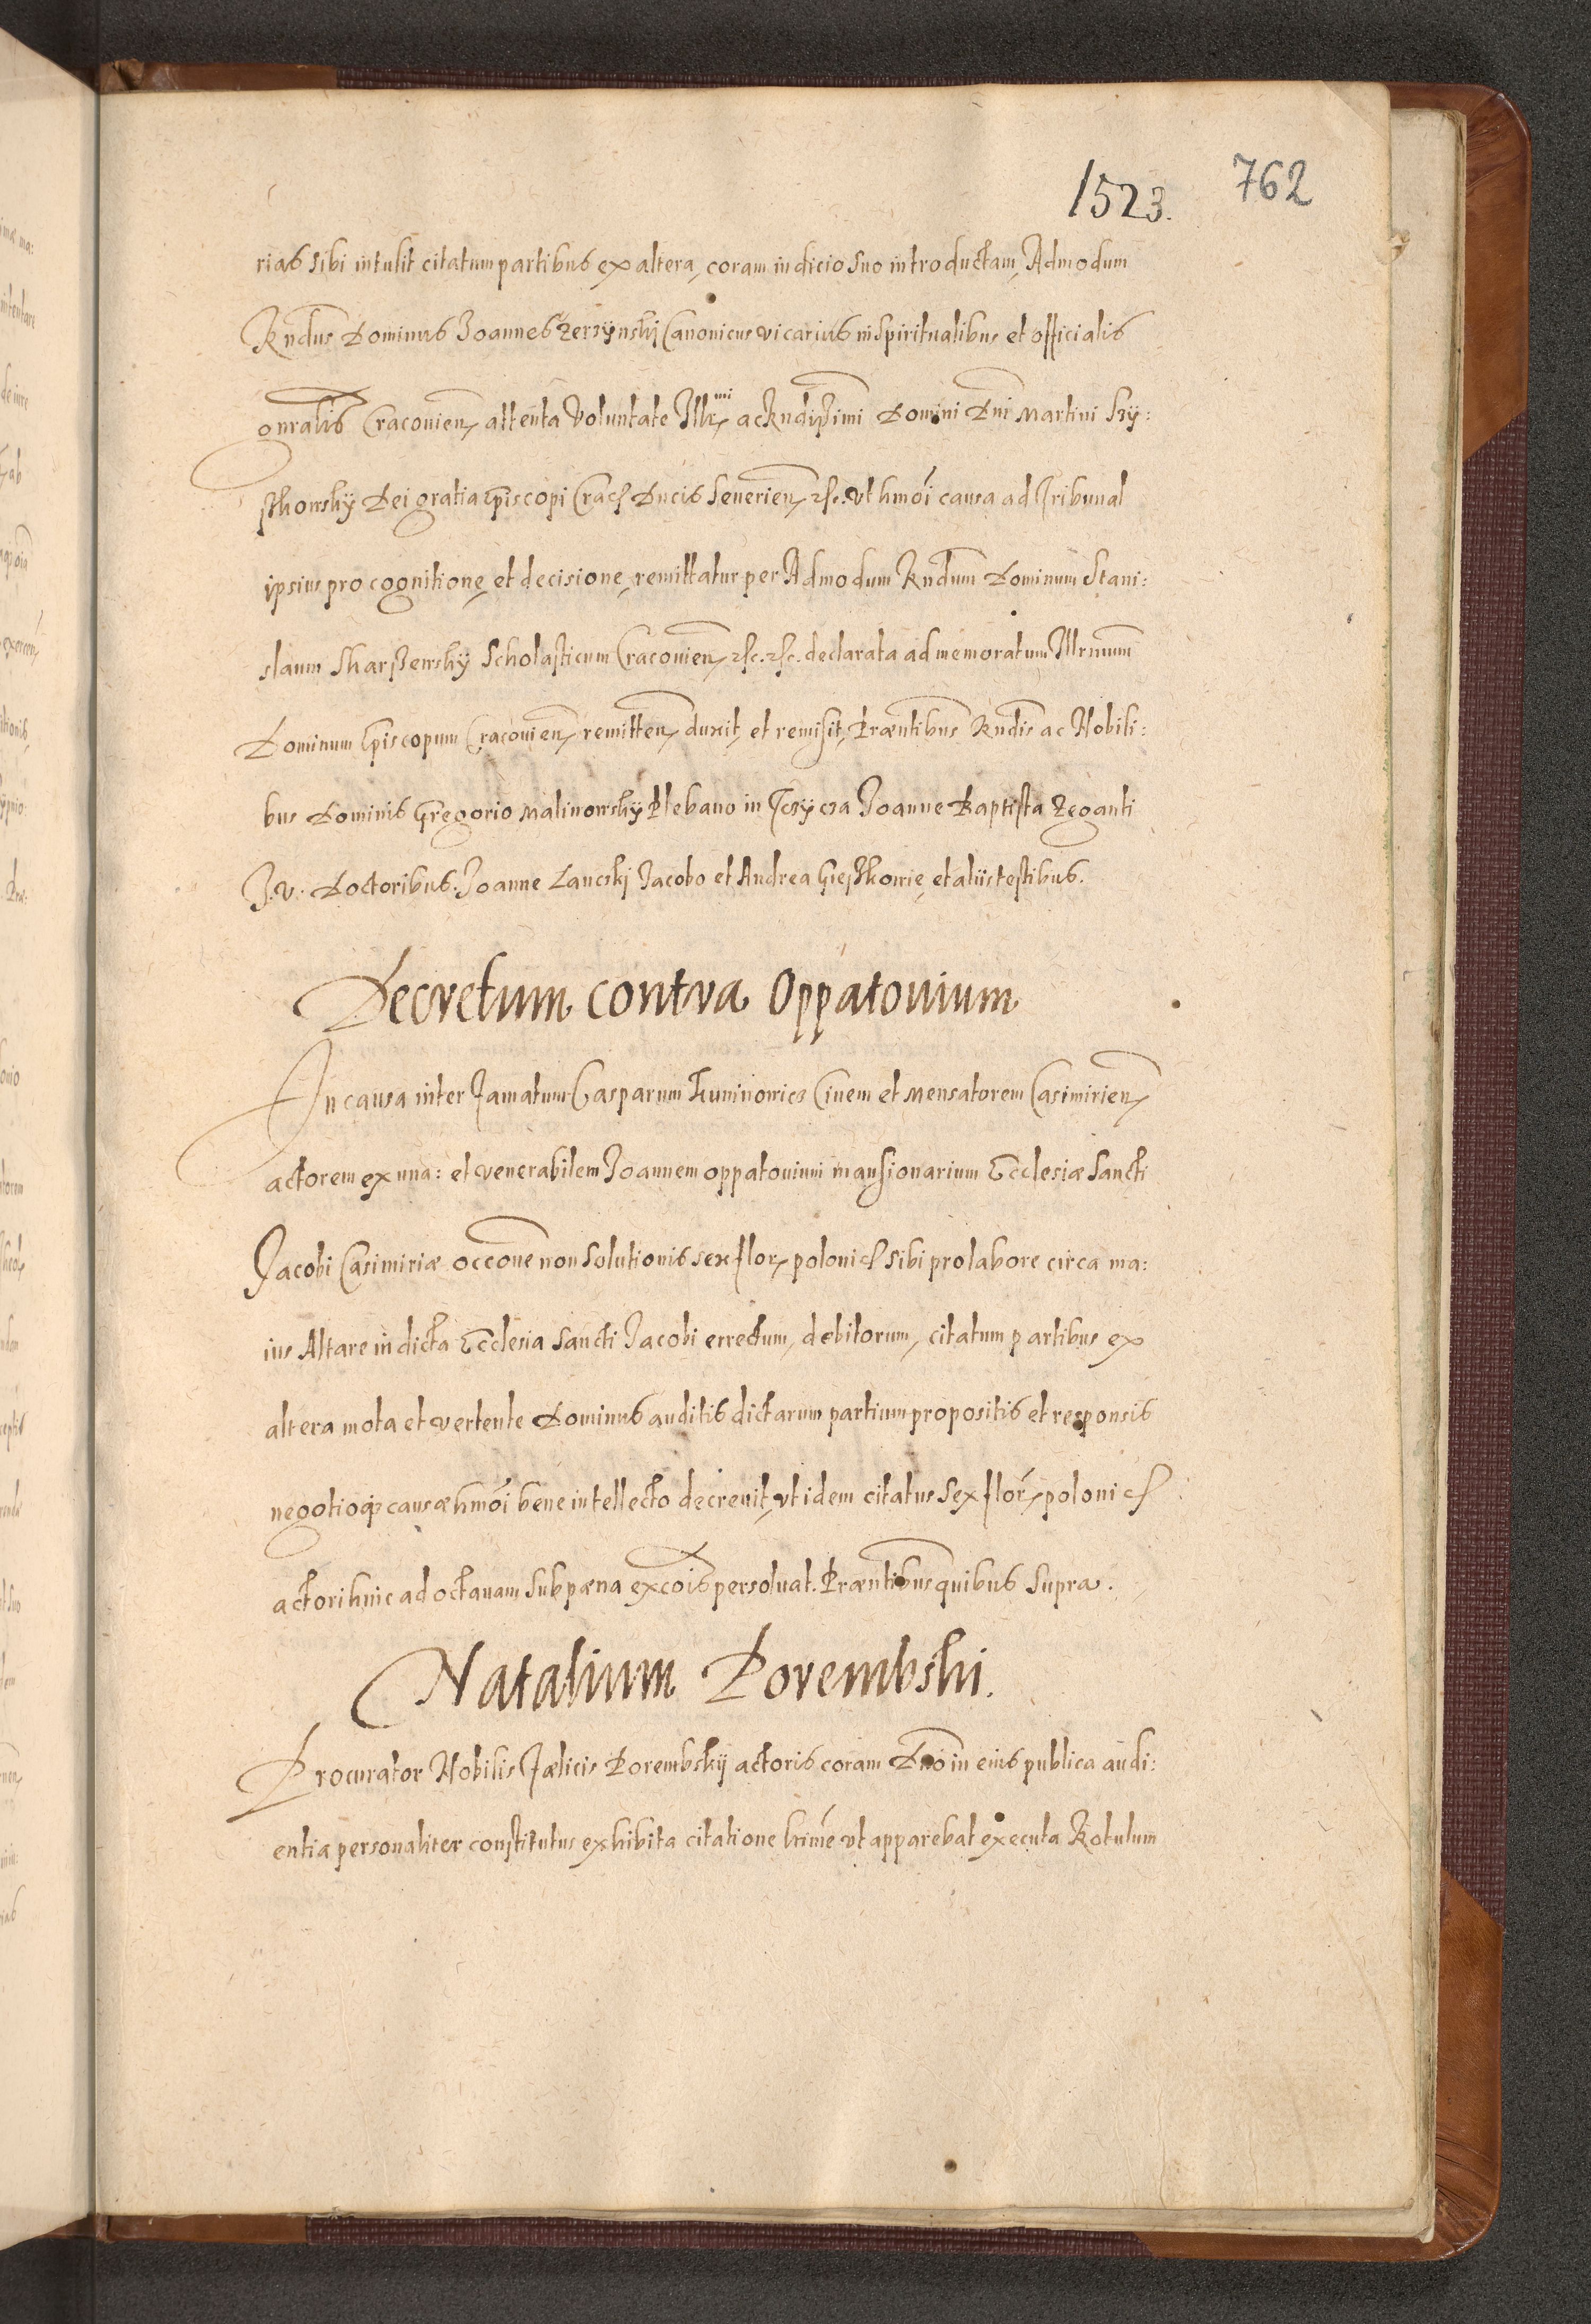 1523. 762
rias sibi intulit citatum partibus ex altera, coram indicio suo introductam, Admodum
Rndus Dominus Joannes Zerzynski Canonicus vicarius in Spiritualibus et officialis
gnralis Cracouien, attenta Voluntate Illr,mi ac Rndissimi Domini Dni Martini Szÿ:
sskowskÿ Dei gratia Episcopi Crac, Ducis Seuerien, etc. vt hmōi causa ad Tribunal
ipsius pro cognitione, et decisione, remittatur per Admodum Rndum Dominum Stani:
slaum Skarßewskÿ Scholasticum Cracouien, etc. etc. declarata ad memoratum Illrmum
Dominum Episcopum Cracouien, remitten, duxit, et remisit, Præntibus Rndis ac Nobili:
bus Dominis Gregorio Malinowskÿ Plebano in Joanne Baptista Zeganti
J. V. Doctoribus. Joanne Lancskj Jacobo et Andrea et alÿs testibus.
Decretum contra Oppatouium
In causa inter famatum Gasparum Kuninowicz Ciuem et Mensatorem Casimirien,
actorem ex una: et venerabilem Joannem oppatouium mansionarium Ecclesiæ Sancti
Jacobi Casimiriæ occone non Solutionis sex flor, polonic, sibi pro labore circa ma:
ius Altare in dicta Ecclesia Sancti Jacobi errectum, debitorum, citatum partibus ex
altera mota et vertente Dominus auditis dictarum partium propositis et responsis
negotioq; causæ hmōi bene intellecto decreuit, vt idem citatus Sex flor, polonic,
actori huic ad octauam sub pæna excōis persoluat. Præntibus quibus Supra.
Natalium Porembski.
Procurator Nobilis Fælicis Porembskÿ actoris coram Dnō in eius publica audi:
entia personaliter constitutus exhibita citatione hmē vt apparebat executa Rotulum